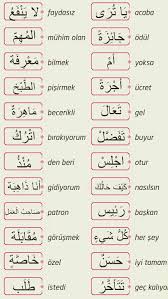 لَا يَنْفَعُ faydasız يَا تُرَى acaba
المُهِمّ mühim olan جَائِزَةٌ ödül
بِمَعْرِفَةِ bilmek أَمْ yoksa
الطَّبْخ pişirmek أُجْرَةٌ ücret
مَاهِرَةٌ becerikli تَعَالَ gel
أَتْرُكُ bırakıyorum تَفَضَّلْ buyur
مُنْذُ den beri اِجْلِسْ otur
أَنَا ذَاهِبَةٌ gidiyorum كَيْفَ حَالُكَ nasılsın
صَاحِبُ العَمَلِ patron رَئِيسٌ başkan
مُقَابَلَةٌ görüşmek كُلُّ شَيْءٍ her şey
خَاصَّةٌ özel حَسَنٌ iyi tamam
طَلَبَ istedi تَتَأَخَّرُ geç kalıyor